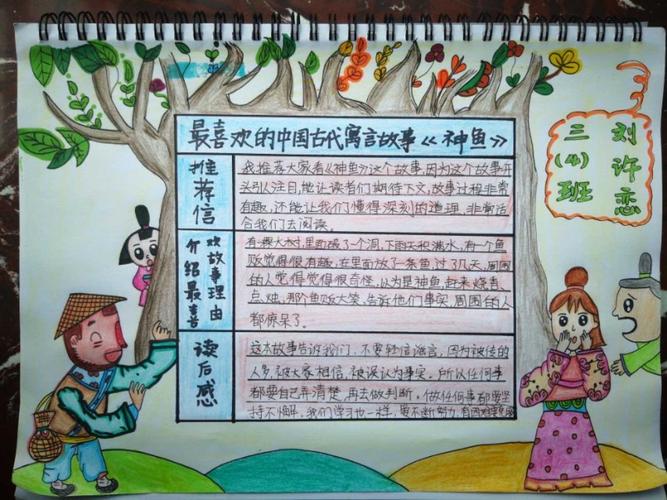 最喜欢的中国古代寓言故事《神鱼》
刘许恋
三(4)班
推荐信
我推荐大家看《神鱼》这个故事,因为这个故事开
头引人注目,能让读者们期待下文,故事过程非常
有趣,还能让我们懂得深刻的道理,非常适
合我们去阅读。
介绍最喜
欢故事理由
有棵大树,里面破了一个洞,下雨天积满水,有一个鱼
贩觉得很有趣,在里面放了一条鱼,过了几天,周围
的人觉得觉得很奇怪,以为是神鱼,赶来烧香
点烛,那个鱼贩大笑,告诉他们事实,周围的人
都惊呆了。
读后感
这本故事告诉我们,不要轻信谣言,因为被传的
人多,被大家相信,被误认为事实。所以任何事
都要自己弄清楚,再去做判断,做任何事都要坚
持不懈,我们学习也一样,要不断努力,